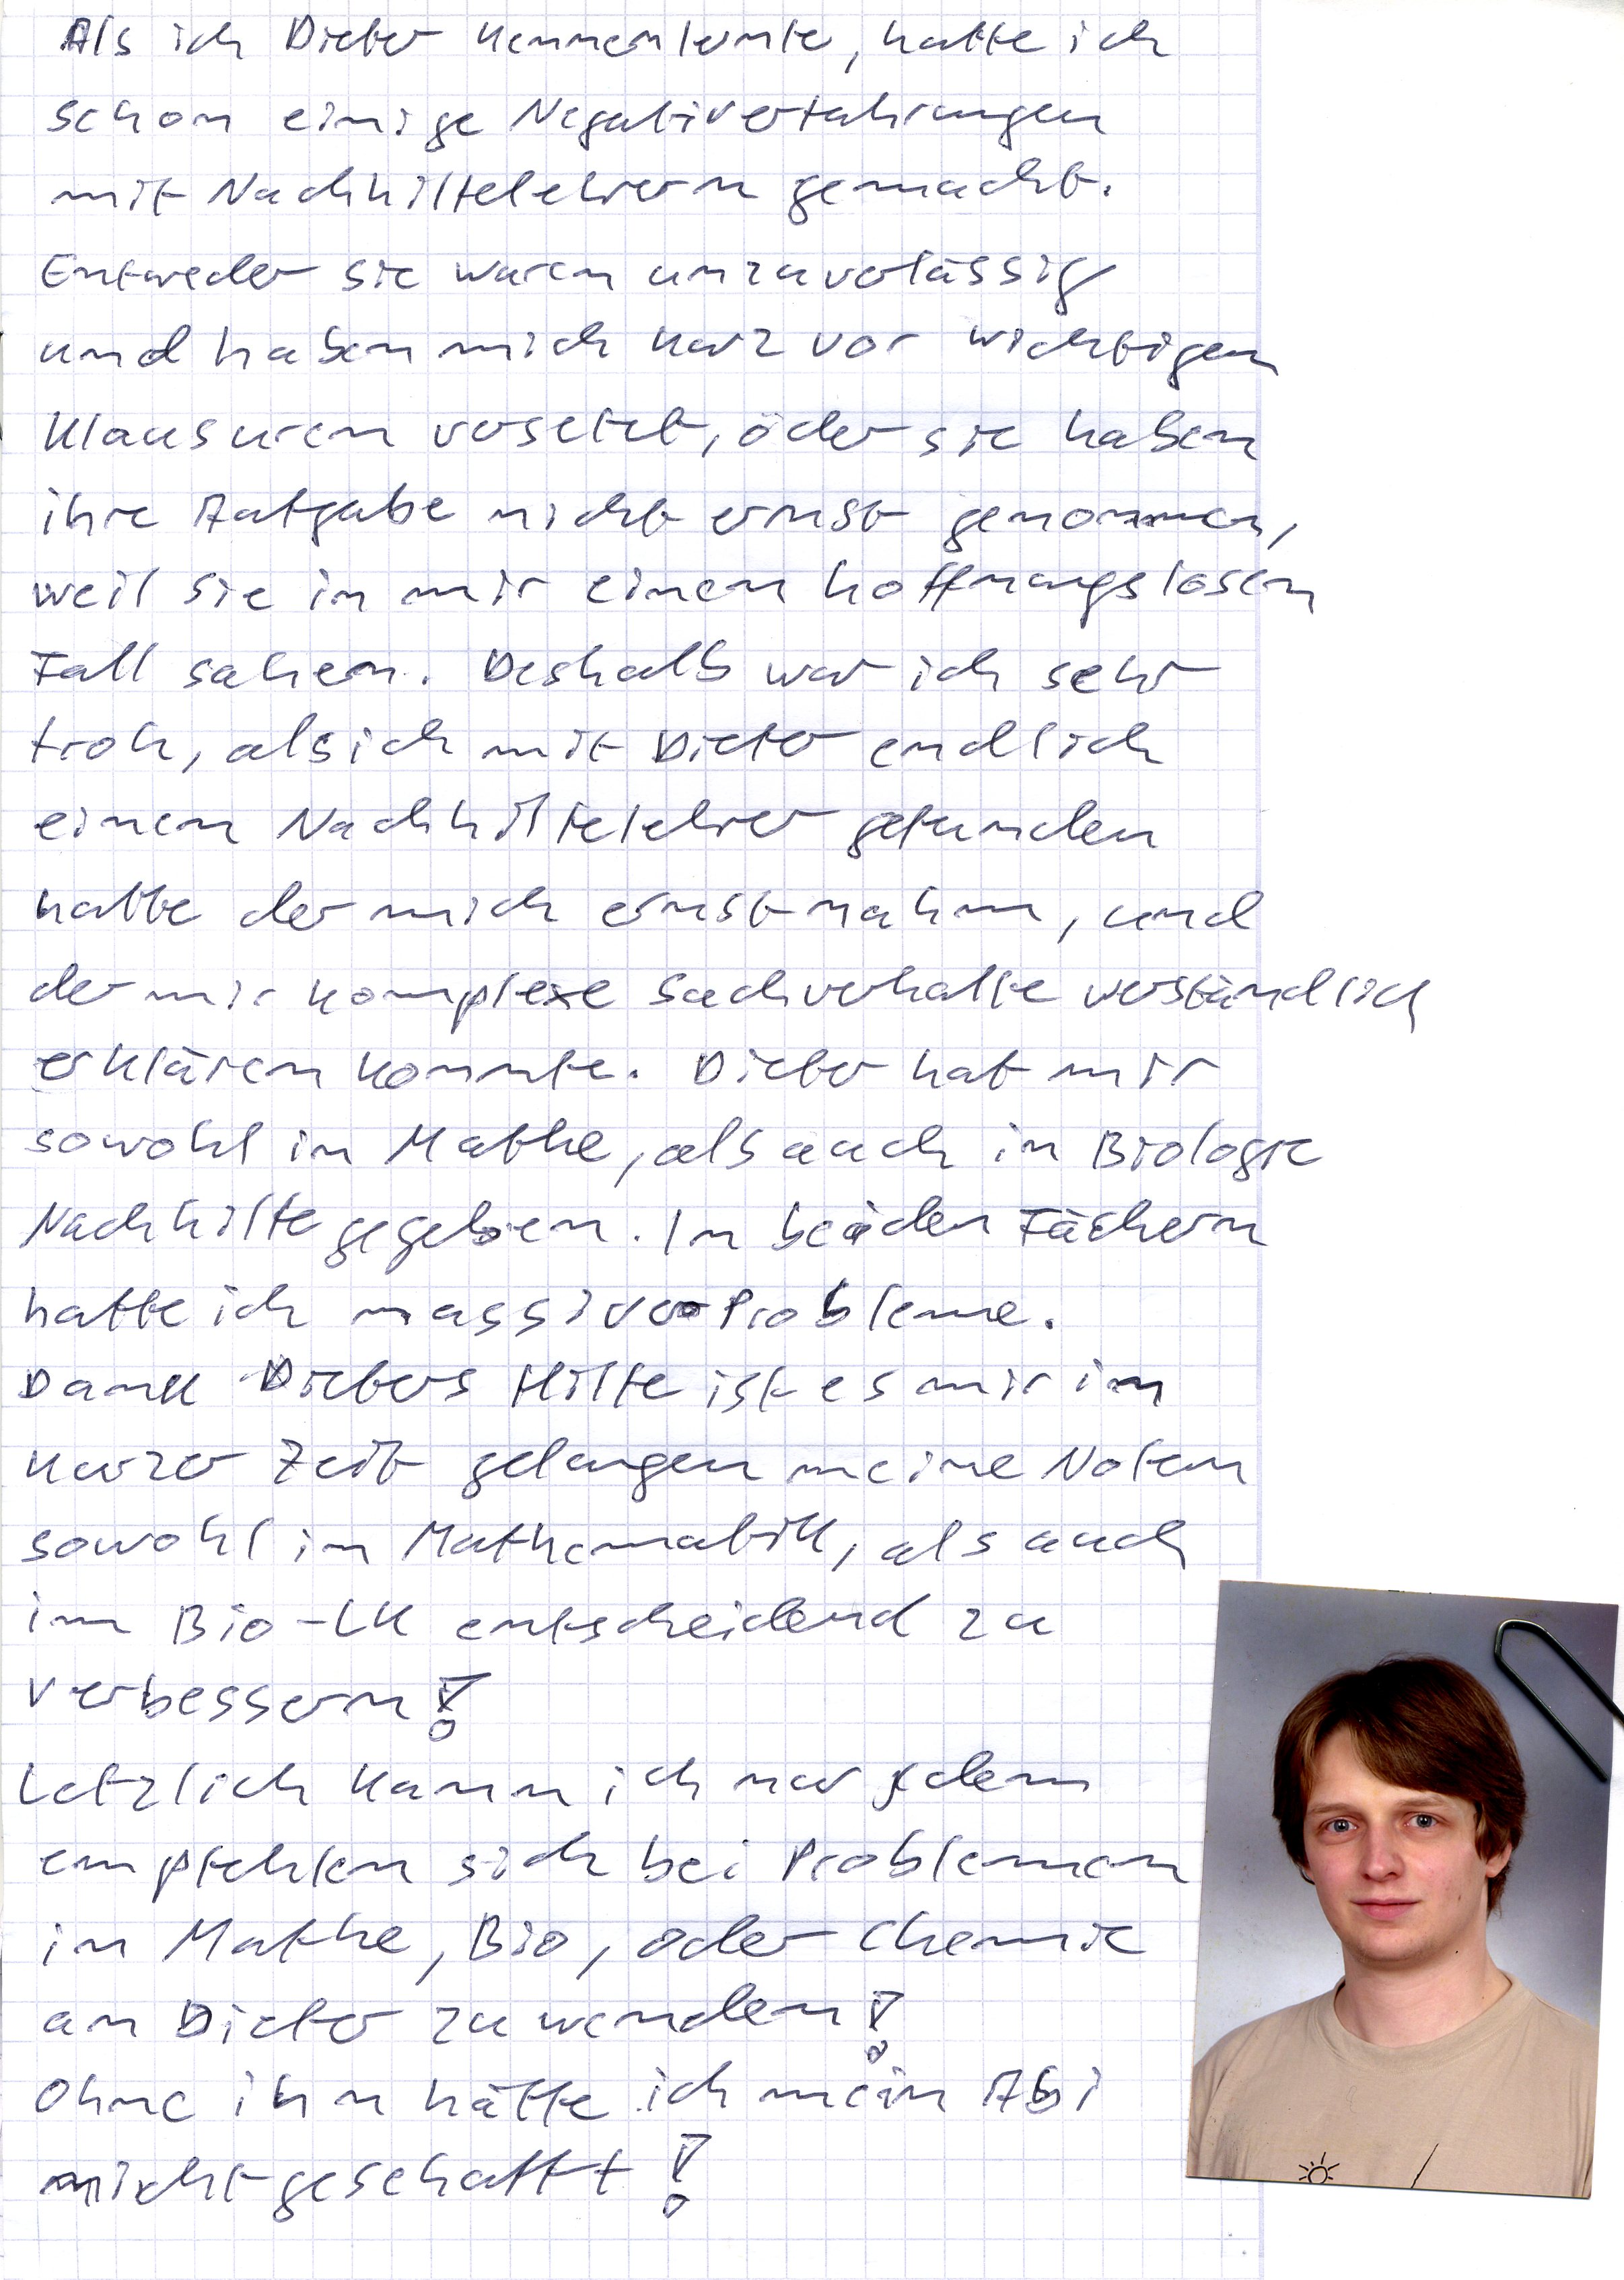 Als ich Dieter kennenlernte, hatte ich
schon einige Negativerfahrungen
mit Nachhilfelehrern gemacht.
Entweder sie waren unzuverlässig
und haben mich kurz vor wichtigen
Klausuren versetzt, oder sie haben
ihre Aufgabe nicht ernst genommen,
weil sie in mir einen hoffnungslosen
Fall sahen. Deshalb war ich sehr
froh, als ich mit Dieter endlich
einen Nachhilfelehrer gefunden
hatte der mich ernst nahm, und
der mir komplexe Sachverhalte verständlich
erklären konnte. Dieter hat mir
sowohl in Mathe, als auch in Biologie
Nachhilfe gegeben. In beiden Fächern
hatte ich massive Probleme.
Dank Dieters Hilfe ist es mir in
kurzer Zeit gelungen meine Noten
sowohl in Mathematik, als auch
im Bio-LK entscheidend zu
verbessern!
Letzlich kann ich nur jedem
empfehlen sich bei Problemen
in Mathe, Bio, oder Chemie
an Dieter zu wenden!
Ohne ihn hätte ich mein Abi
nicht geschafft!